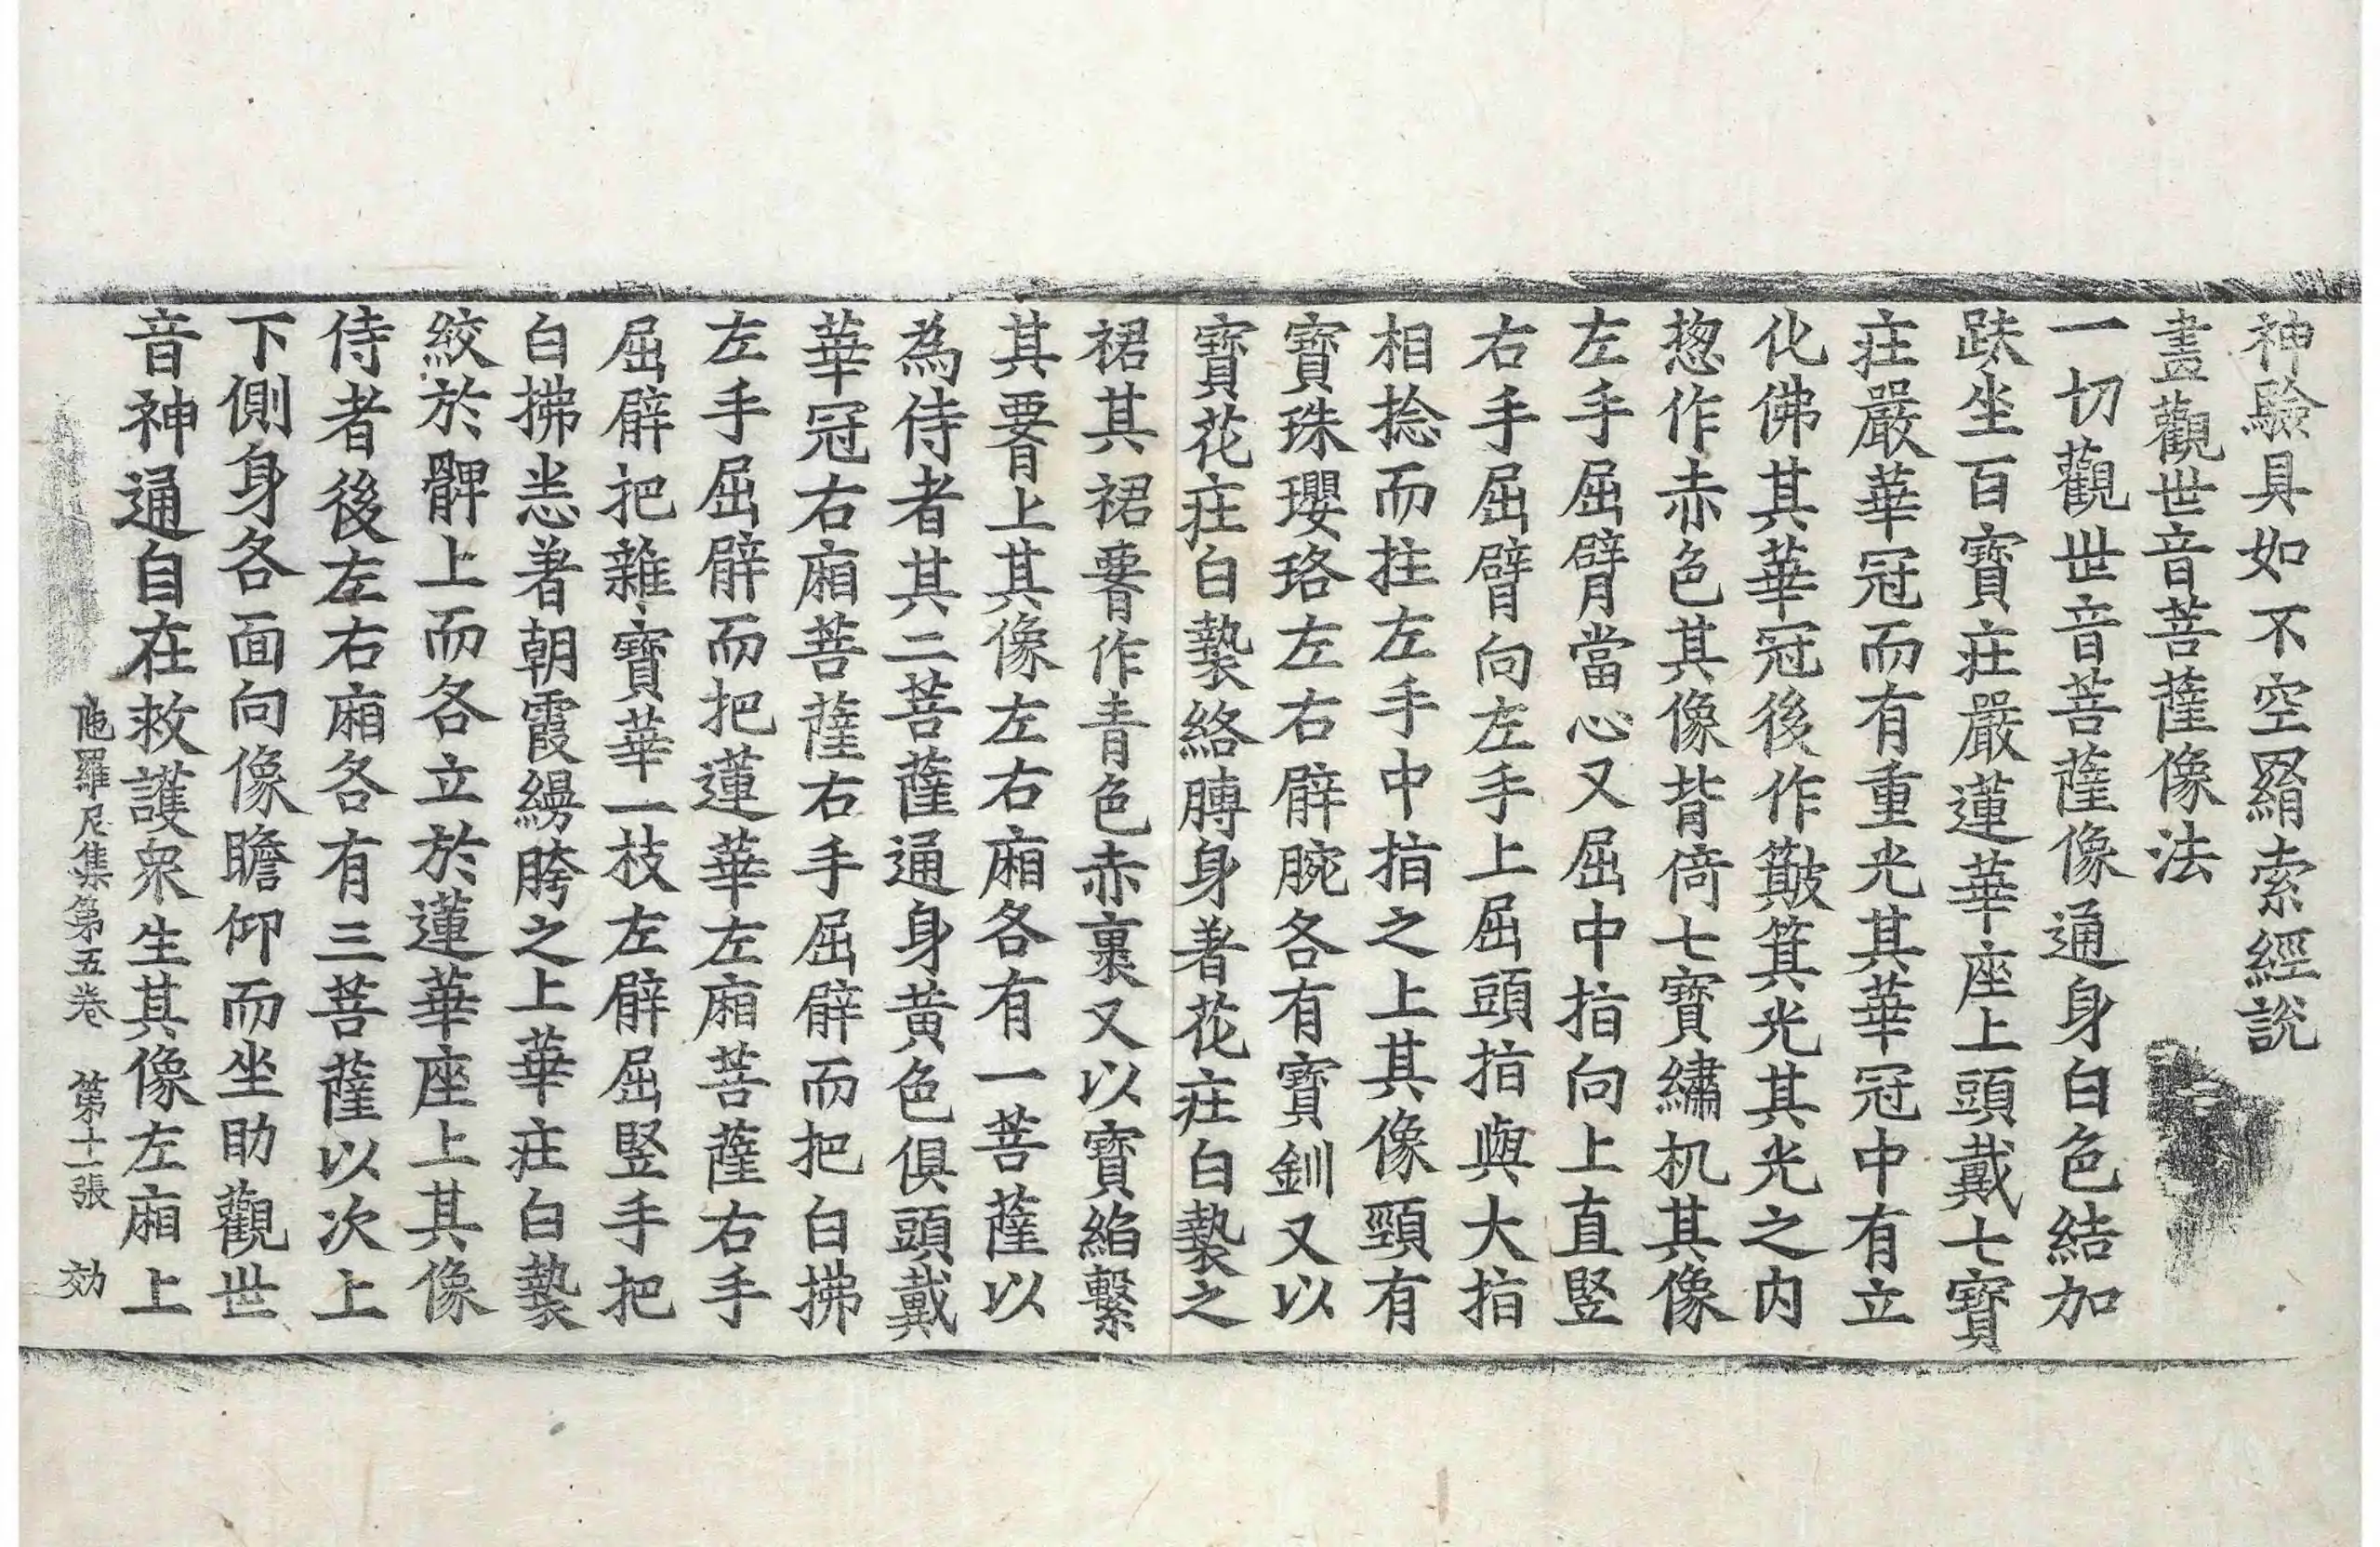 神驗具如不空羂索經說
畫觀世音菩薩像法
一切觀世音菩薩像通身白色結加
趺坐百寶莊嚴蓮華座上頭戴七寶
莊嚴華冠而有重光其華冠中有立
化佛其華冠後作簸箕光其光之內
惣作赤色其像背倚七寶繡机其像
左手屈臂當心又屈中指向上直竪
右手屈臂向左手上屈頭指與大指
相捻而拄左手中指之上其像頸有
寶珠瓔珞左右臂腕各有寶釧又以
寶花莊白㲲絡膊身著花莊白㲲之
裙其裙䙅作青色赤裏又以寶縚繫
其䙅上其像左右廂各有一菩薩以
為侍者其二菩薩通身黃色俱頭戴
華冠右廂菩薩右手屈臂而把白拂
左手屈臂而把蓮華左廂菩薩右手
屈臂把雜寶華一枝左臂屈竪手把
白拂悉著朝霞縵胯之上華莊白㲲
絞於髀上而各立於蓮華座上其像
侍者後左右廂各有三菩薩以次上
下側身各面向像瞻仰而坐助觀世
音神通自在救護衆生其像左廂上
陁羅尼集第五卷　第十一張　効